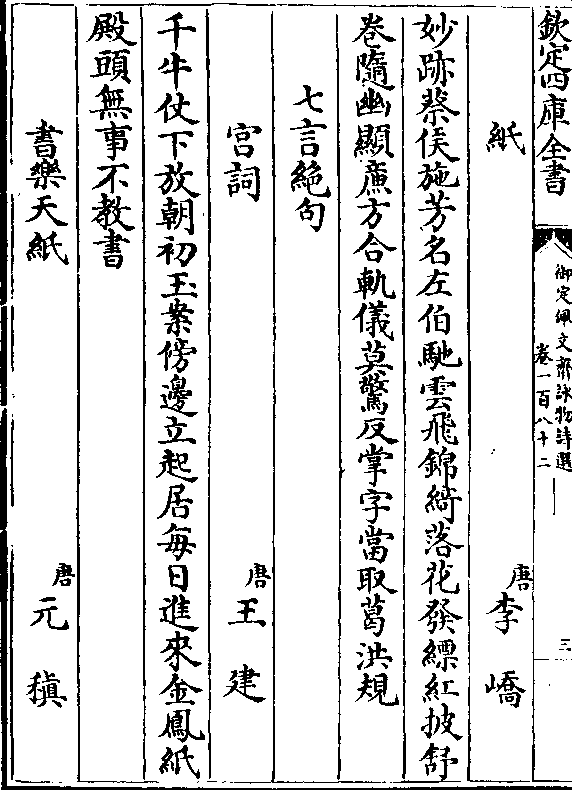 欽定四庫全書
御定佩文齋詠物詩選
卷一百八十二
三
紙
唐
李嶠
妙跡蔡侯施芳名左伯馳雲飛錦綺落花發縹紅披舒
卷隨幽顯廉方合軌儀莫驚反掌字當取葛洪規
七言絕句
宮詞
唐
王建
千牛仗下放朝初玉案傍邊立起居每日進來金鳳紙
殿頭無事不教書
書樂天紙
唐
元稹